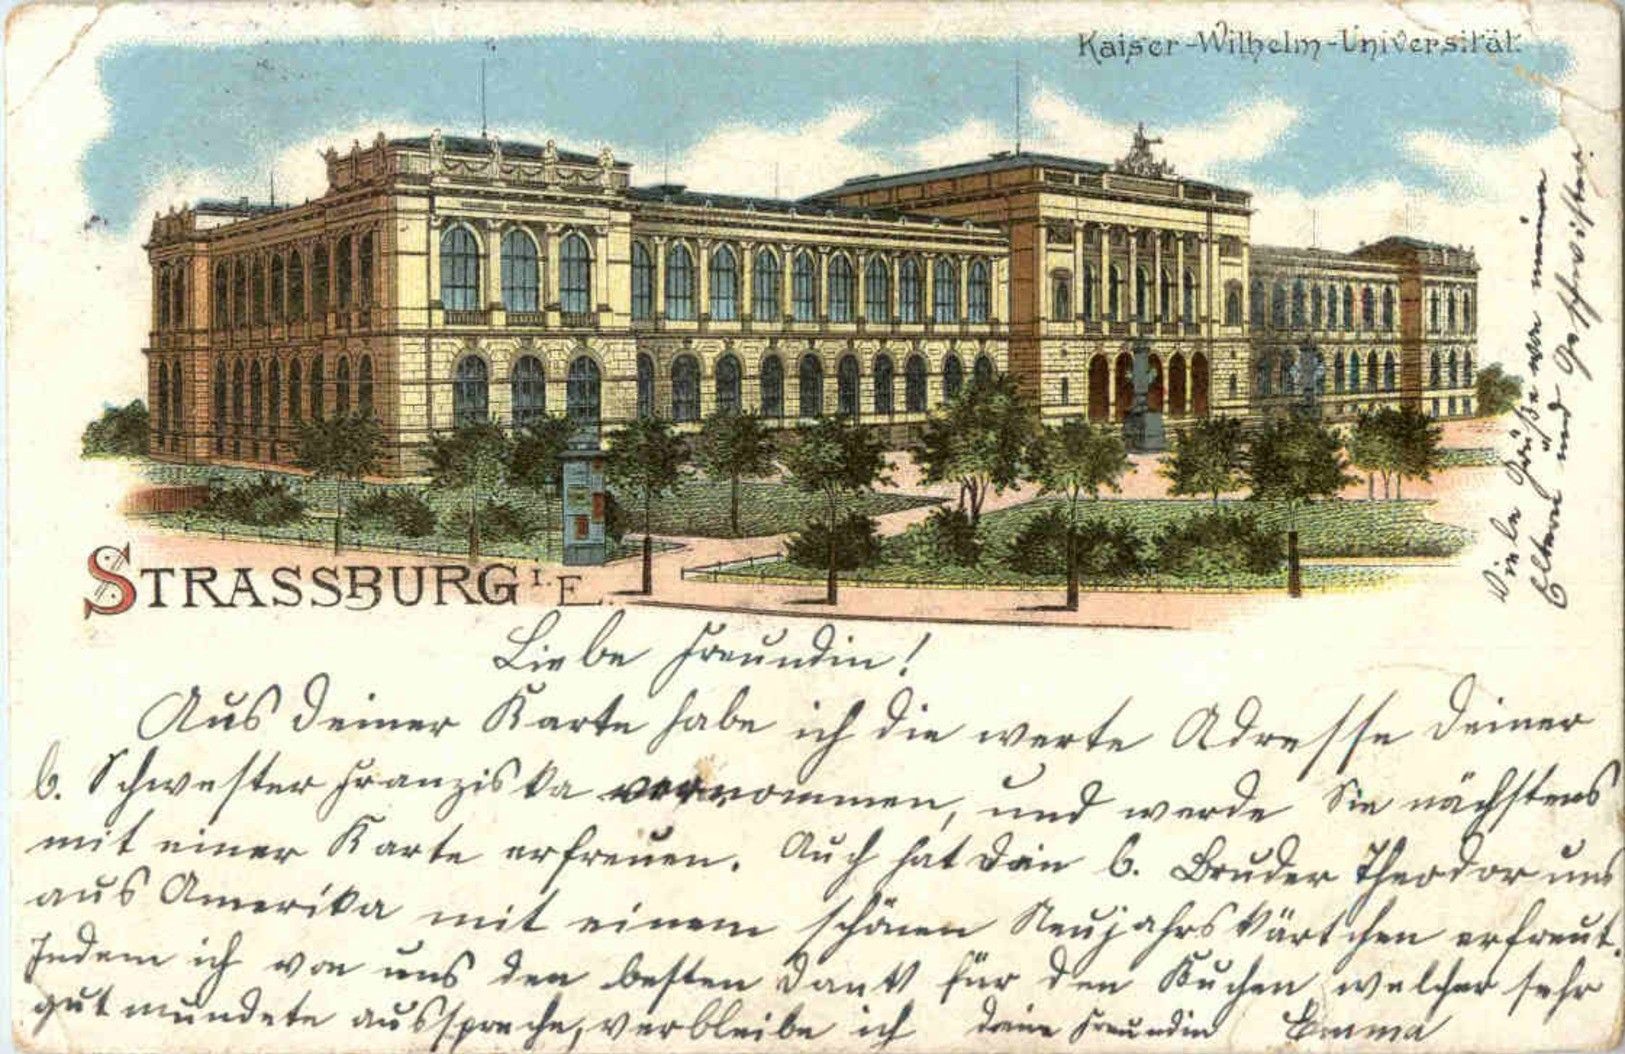 Kaiser-Wilhelm-Universität.
STRASSBURG I. E.
Liebe Freundin!
Aus Deiner Karte habe ich die werte Adresse Deiner
b. Schwester Franziska vernommen, und werde Sie nächstens
mit einer Karte erfreuen. Auch hat Dein b. Bruder Theodor uns
aus Amerika mit einem schönen Neujahrskärtchen erfreut.
Indem ich von uns den besten Dank für den Kuchen welcher sehr
gut mundete ausspreche, verbleibe ich deine Freundin Emma
Viele Grüße von meinen
Eltern und Geschwister.